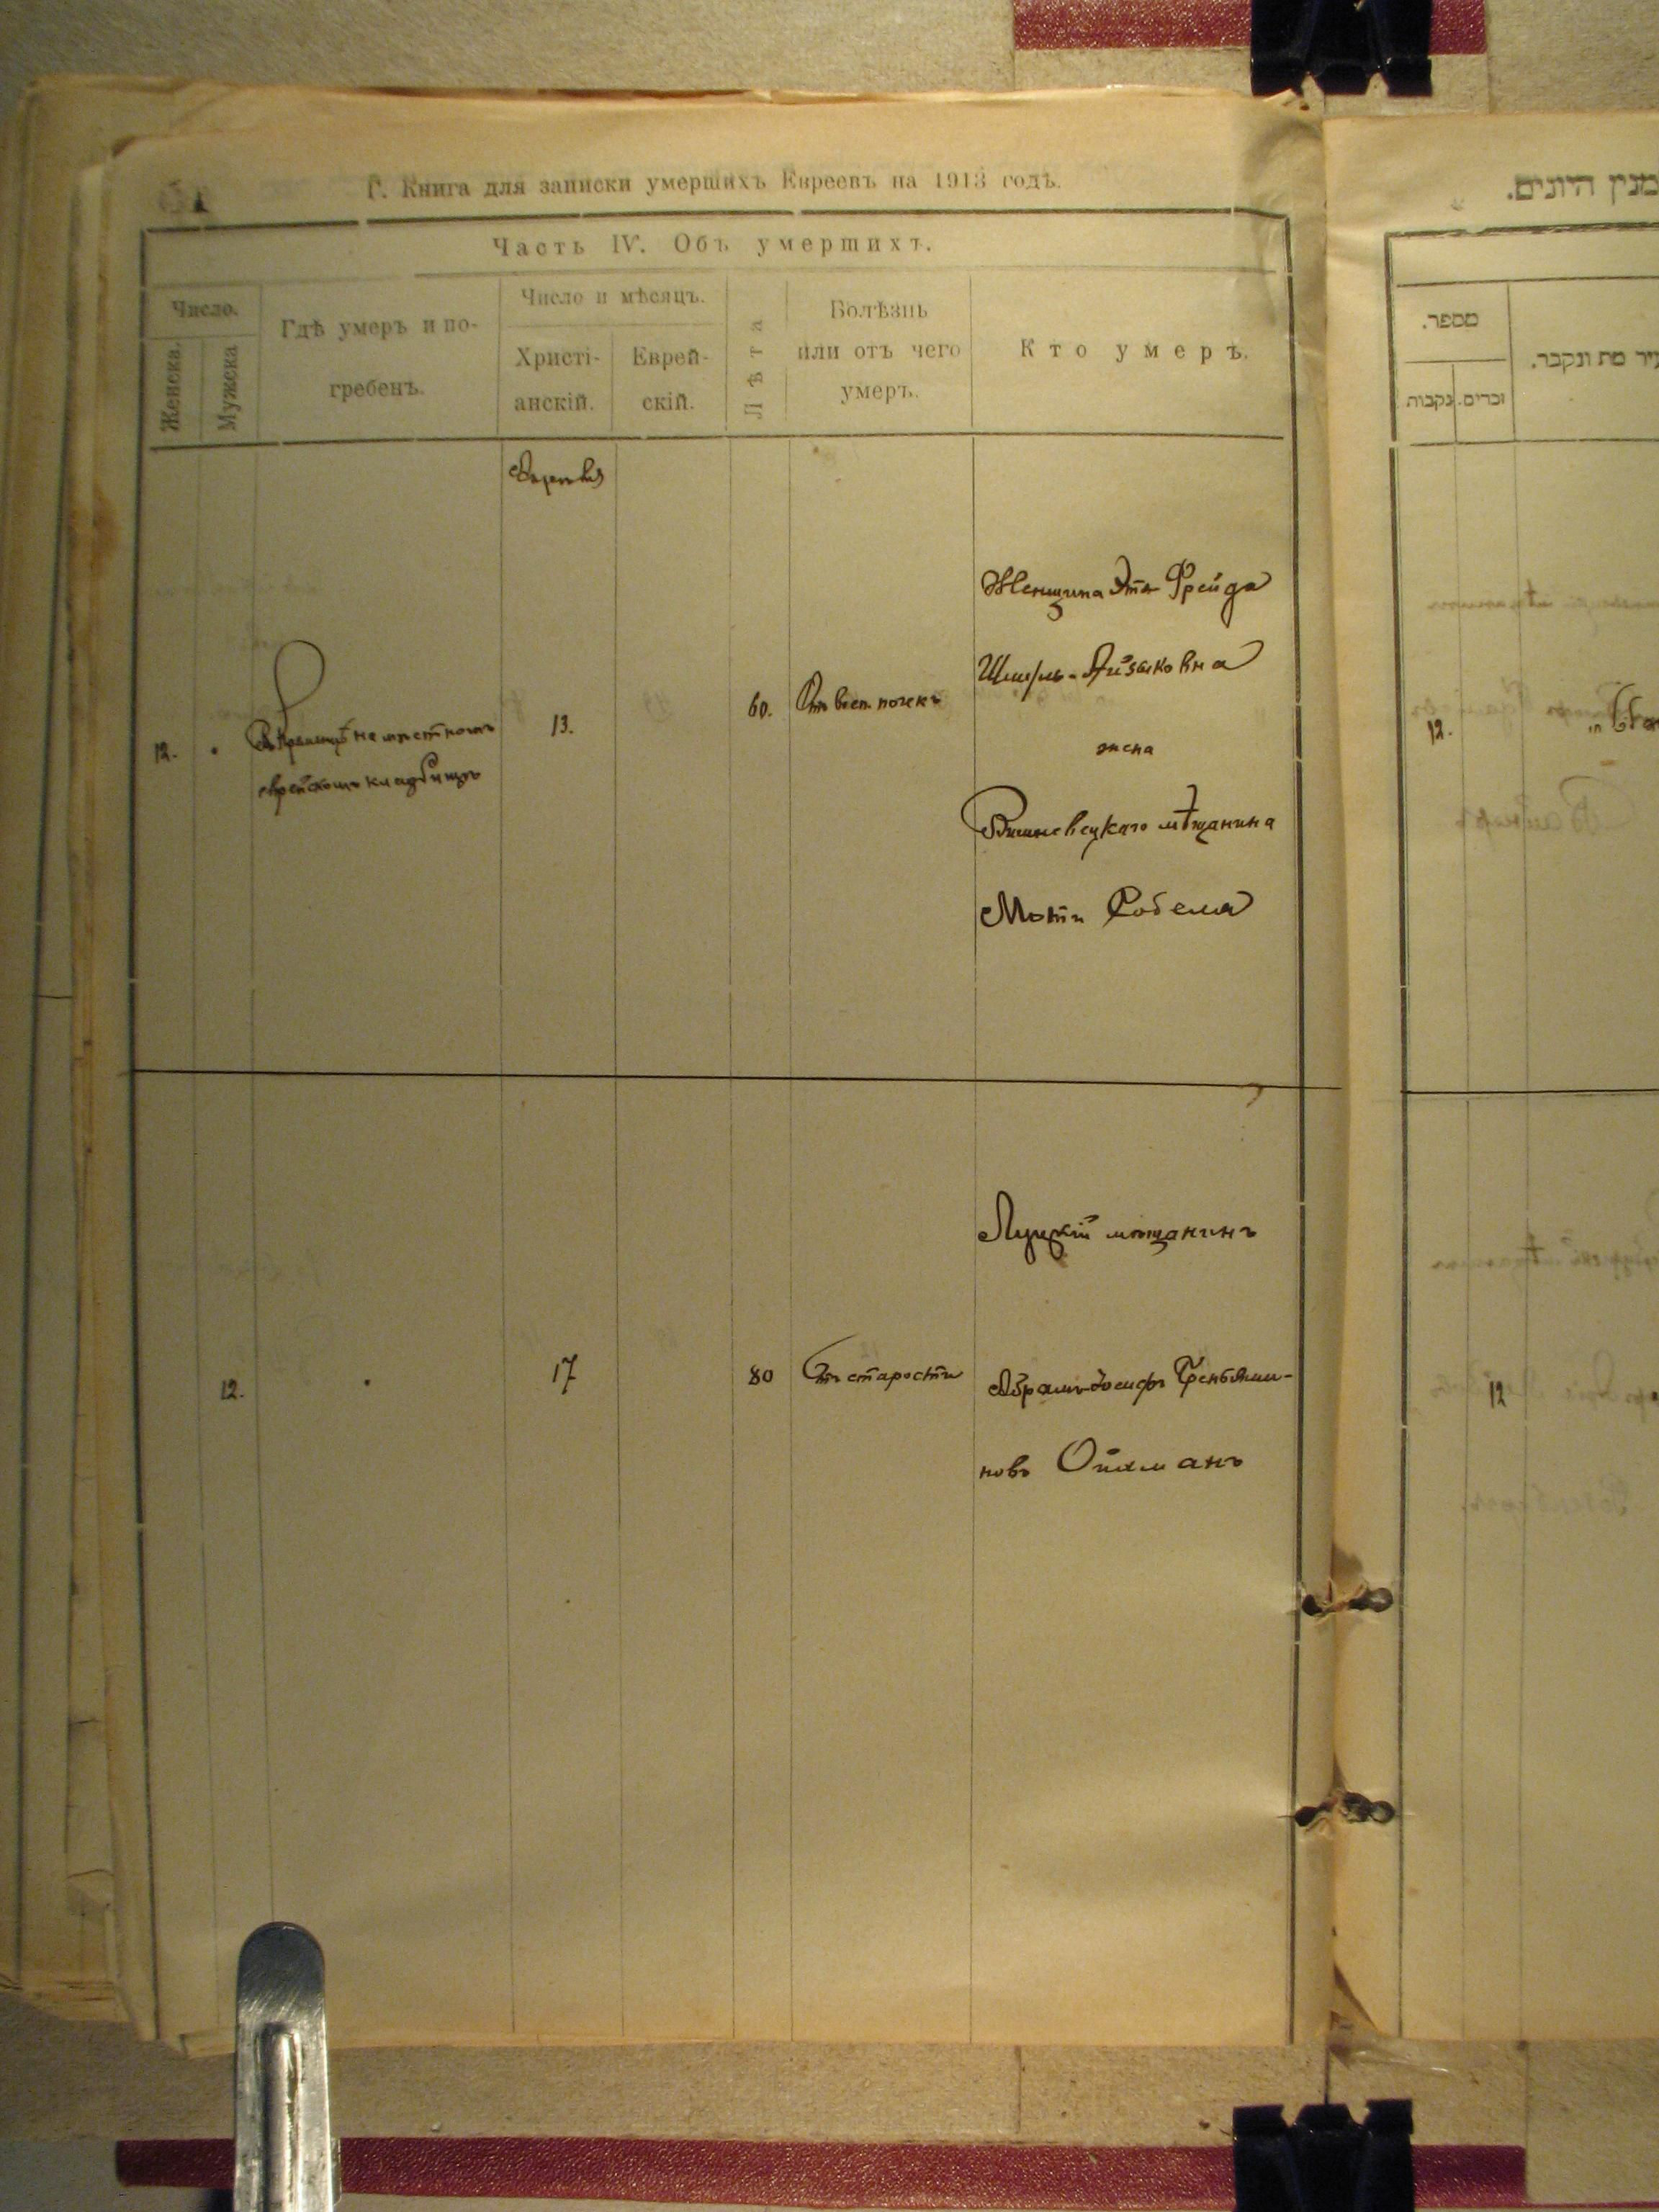 Г. Книга для записки умершихъ Евреевъ на 1913 годъ.
Часть IV. Объ умершихъ.
Число.
Женска.
Мужска
Гдѣ умеръ и по-
гребенъ.
Число и мѣсяцъ.
Христі-
анскій.
Еврей-
скій.
Лѣта
Болѣзнь
или отъ чего
умеръ.
Кто умеръ.
12.
на мѣстномъ
еврейскомъ кладбищѣ
13.
60.
Отъ восп. почекъ
Женщина Этя Фрейда
Айзыковна
жена
Вишневецкаго мѣщанина
Моти
12.
17
80
Отъ старости
Луцкій мѣщанинъ
Абрамъ-Іосифъ
новъ
מנין היונים.
מספר.
נקבות
זכרים.
מת ונקבר.
12.
12